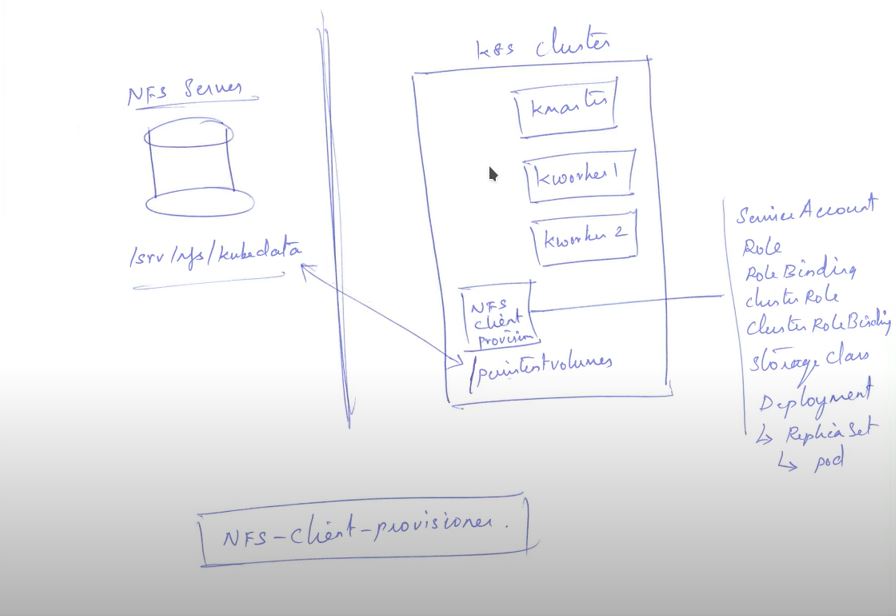 NFS Server
/srv/nfs/kubedata
k8s cluster
kmaster
kworker1
kworker 2
NFS
client
provision
/persistentvolumes
ServiceAccount
Role
RoleBinding
clusterRole
ClusterRoleBinding
StorageClass
Deployment
↳ ReplicaSet
↳ pod
NFS-Client-provisioner.